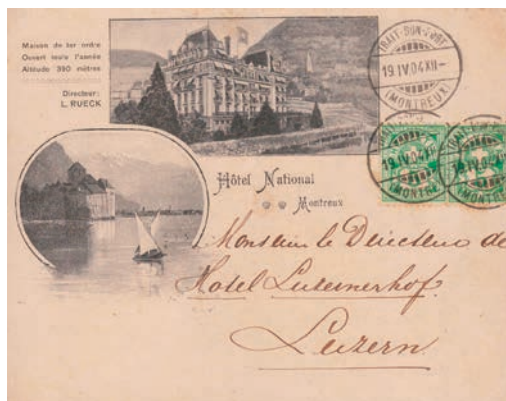 Maison de 1er ordre
Ouvert toute l'année
Altitude 390 mètres
Directeur:
L. RUECK
TRAIT-BON-PORT
19.IV.04.XII-
(MONTREUX)
Hôtel National
Montreux
Monsieur le Directeur de
Hotel Luzernerhof.
Luzern.